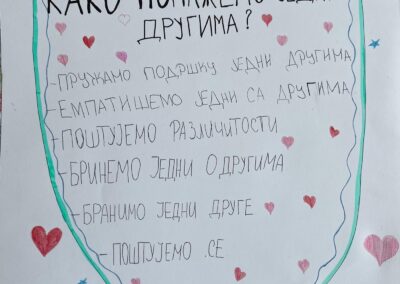 КАКО ПОМАЖЕМО ЈЕДНИ
ДРУГИМА?
-ПРУЖАМО ПОДРШКУ ЈЕДНИ ДРУГИМА
-ЕМПАТИШЕМО ЈЕДНИ СА ДРУГИМА
-ПОШТУЈЕМО РАЗЛИЧИТОСТИ
-БРИНЕМО ЈЕДНИ О ДРУГИМА
-БРАНИМО ЈЕДНИ ДРУГЕ
-ПОШТУЈЕМО СЕ